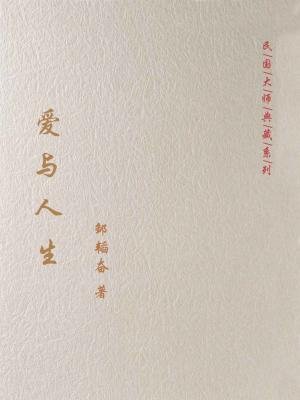 民国大师典藏系列
爱与人生
邹韬奋 著